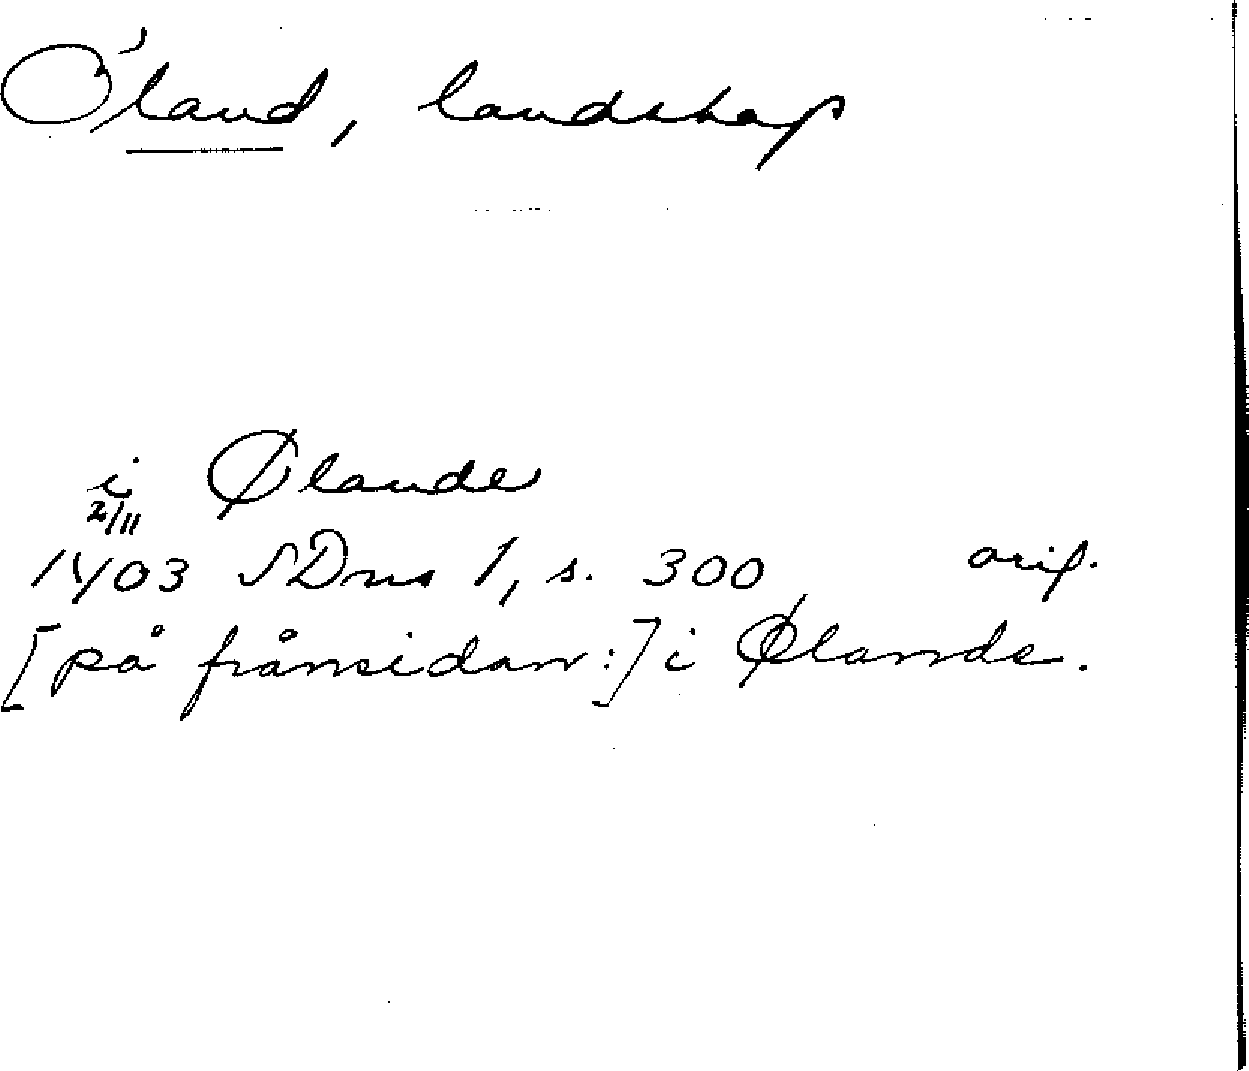 Öland, landskap
i Ølande
2/11
1403 SDns 1, s. 300 orig.
[på frånsidan:] i Ølande.